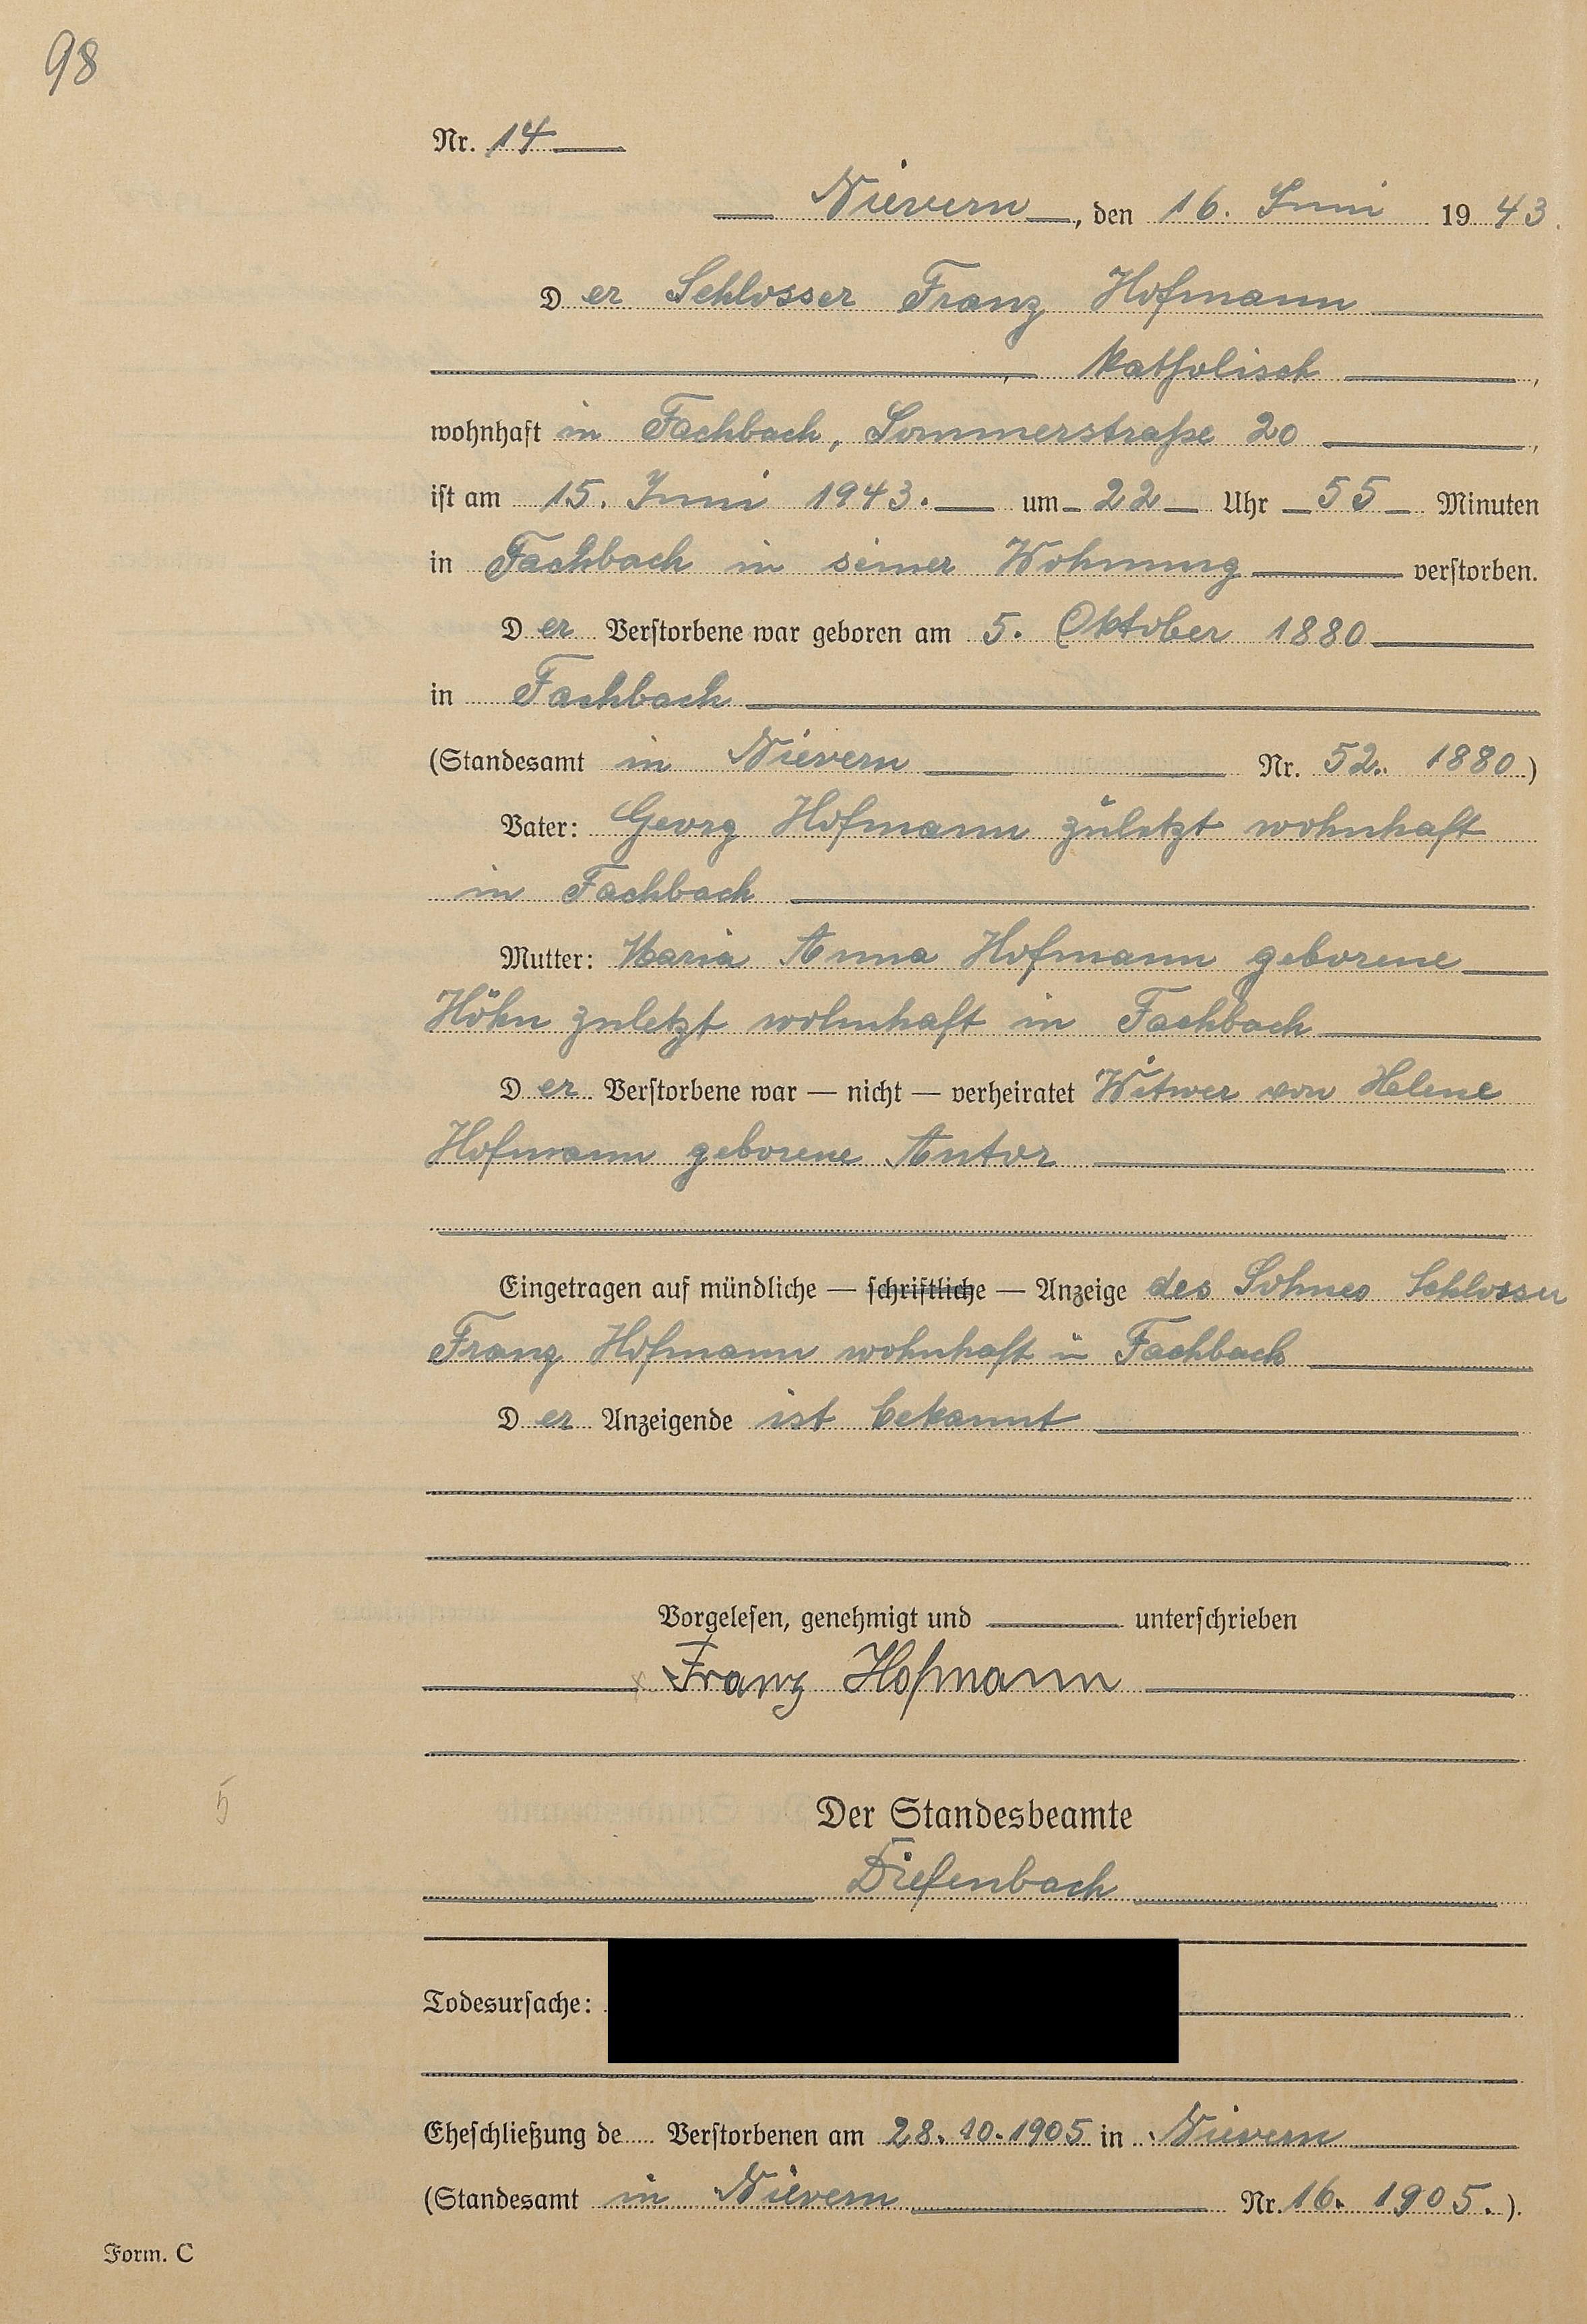 98
Nr. 14
Nievern, den 16. Juni 1943.
Der Schlosser Franz Hofmann
katholisch,
wohnhaft in Fachbach, Sommerstraße 20,
ist am 15. Juni 1943. um 22 Uhr 55 Minuten
in Fachbach in seiner Wohnung verstorben.
Der Verstorbene war geboren am 5. Oktober 1880
in Fachbach
(Standesamt in Nievern Nr. 52. 1880)
Vater: Georg Hofmann zuletzt wohnhaft
in Fachbach
Mutter: Maria Anna Hofmann geborene
Höhn zuletzt wohnhaft in Fachbach
Der Verstorbene war — nicht — verheiratet Witwer von Helene
Hofmann geborene Antor
Eingetragen auf mündliche — schriftliche — Anzeige des Sohnes Schlosser
Franz Hofmann wohnhaft in Fachbach
Der Anzeigende ist bekannt
Vorgelesen, genehmigt und unterschrieben
x Franz Hofmann
5
Der Standesbeamte
Diefenbach
Todesursache:
Eheschließung de Verstorbenen am 28.10.1905 in Nievern
(Standesamt in Nievern Nr. 16. 1905.).
Form. C